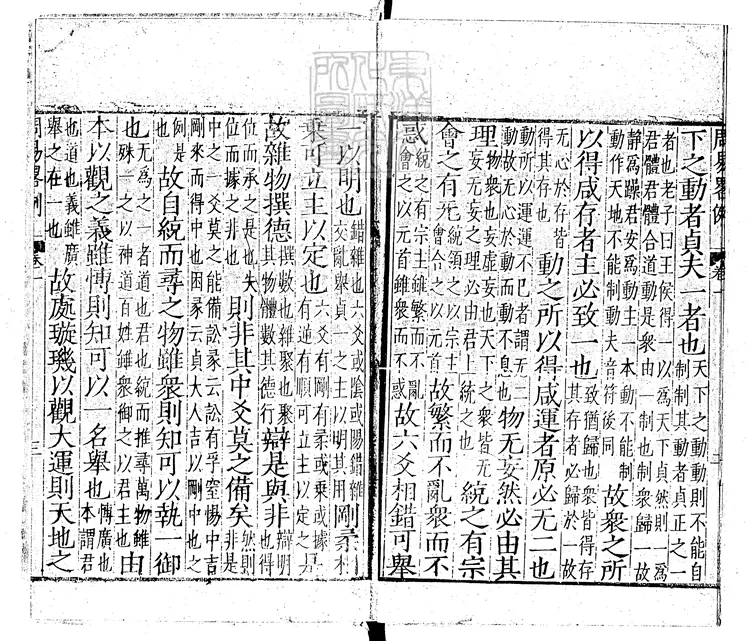 周易畧例 卷一 二
下之動者貞夫一者也天下之動動則不能自制制其動者貞正之一
者也老子曰王侯得一以為天下貞然則一為君體君體合道動是衆由一制也制衆歸一故
靜為躁君安為動主一本動不能制動作天地不能制動夫音符後同故衆之所
以得咸存者主必致一也致猶歸也衆皆得存其存者必歸於一故
无心於存皆得其存也動之所以得咸運者原必无二也
動所以運運不已者謂无二動故无心於動而動不息也物无妄然必由其
理物衆也妄虚妄也天下之衆皆无妄无妄之理必由君上統之也統之有宗
會之有元統領之以宗主會合之以元首故繁而不亂衆而不
惑統之有宗主雖繁而不亂會之以元首雖衆而不惑故六爻相錯可舉
一以明也錯雜也六爻或陰或陽錯雜交亂舉貞一之主以明其用剛柔相
乘可立主以定也六爻有剛有柔或乘或據有逆有順可立主以定之是
故雜物撰德撰數也雜聚也聚其物體數其德行辯是與非辯明也得
位而承之是也失位而據之非也則非其中爻莫之備矣然則非是
中之一爻莫之能備訟彖云訟有孚窒惕中吉剛來而得中也困彖云貞大人吉以剛中也之
例是也故自統而尋之物雖衆則知可以執一御
也无為之一者道也君也統而推尋萬物雖殊一之以神道百姓雖衆御之以君主也由
本以觀之義雖博則知可以一名舉也博廣也本謂君
也道也義雖廣舉之在一也故處璇璣以觀大運則天地之
周易畧例 卷一 三